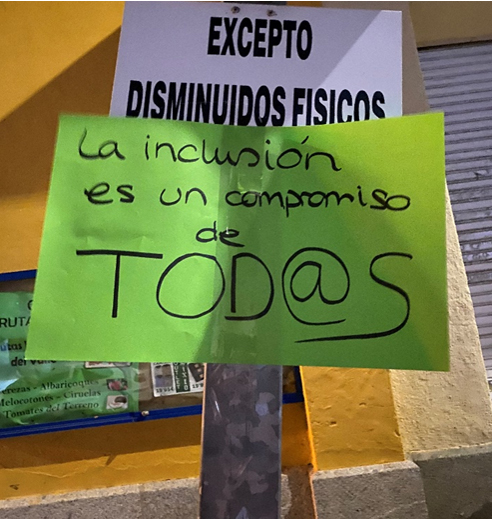 EXCEPTO
DISMINUIDOS FISICOS
La inclusión
es un compromiso
de
TOD@S
del Valle
erezas - Albaricoques
Melocotones - Ciruelas
Tomates del Terreno